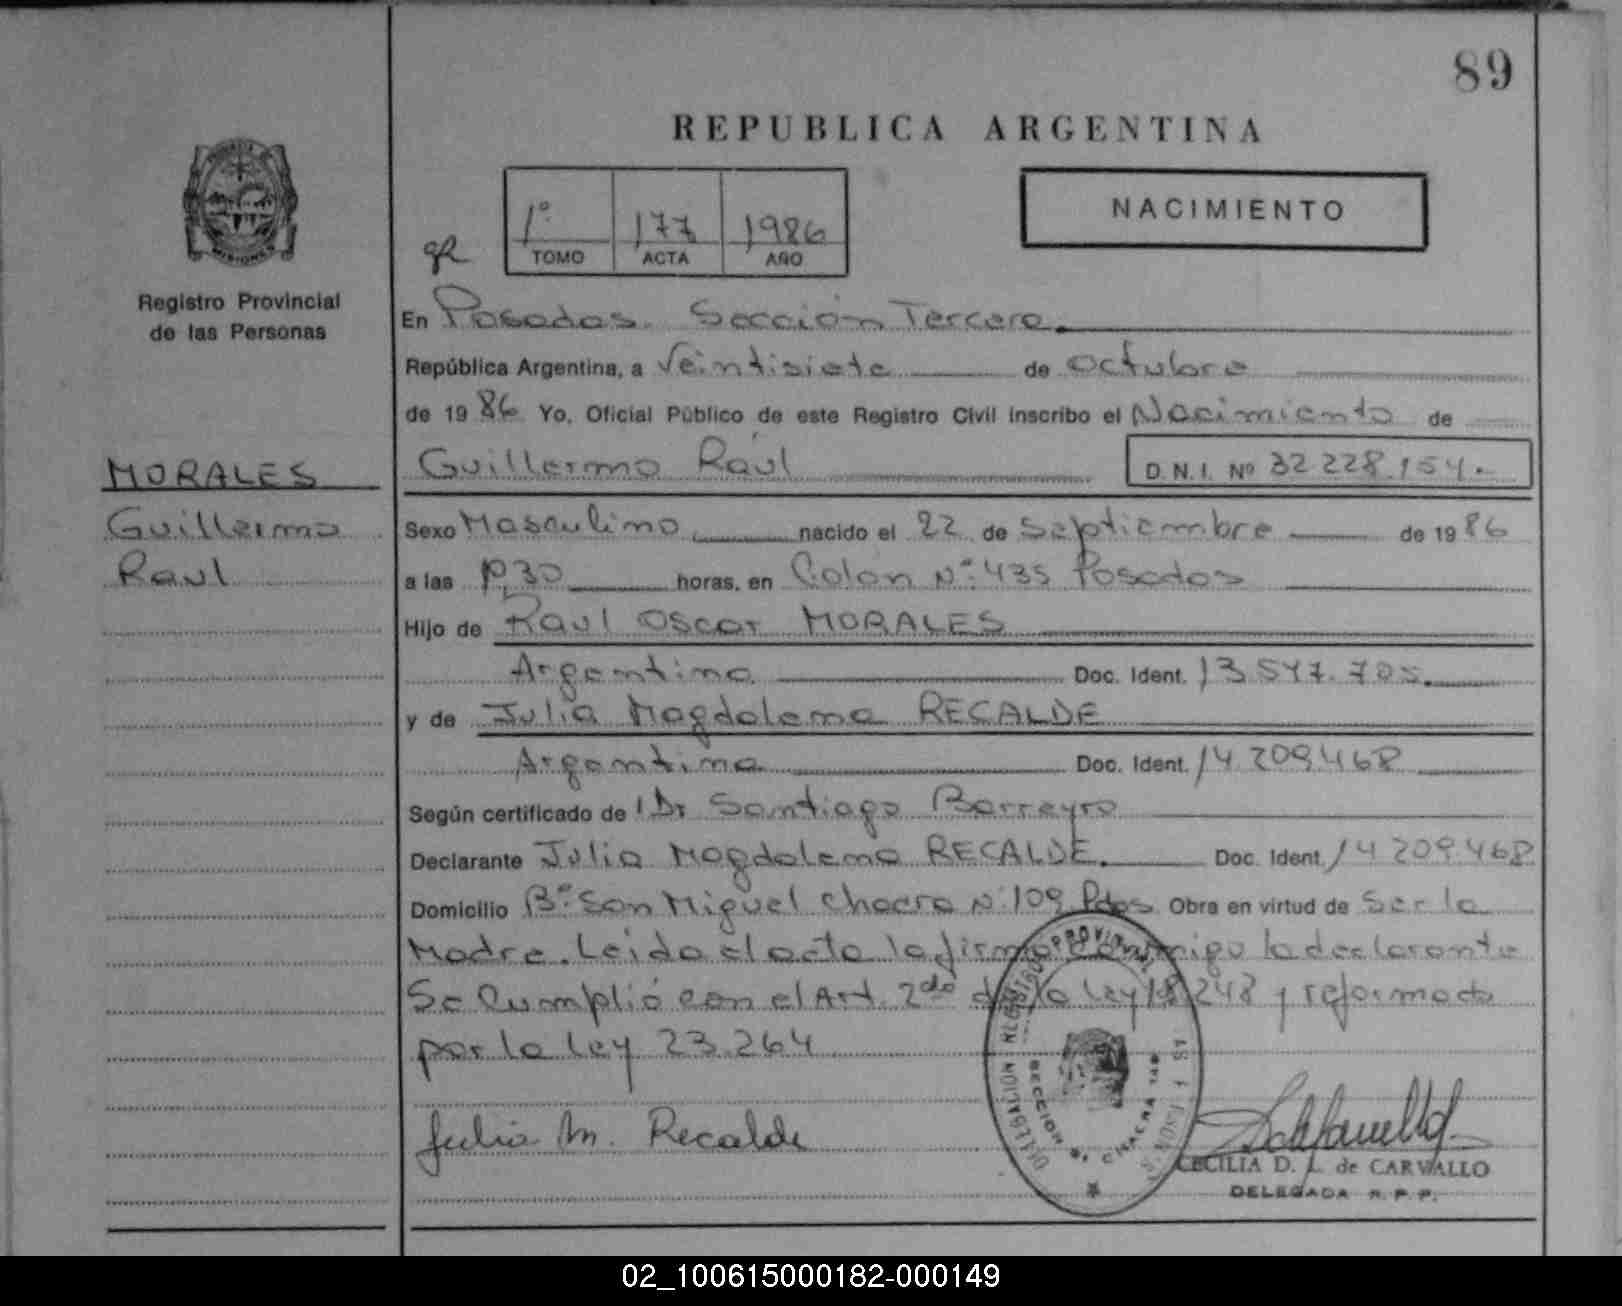 89
REPUBLICA ARGENTINA
1º 177 1986
TOMO ACTA AÑO
NACIMIENTO
Registro Provincial
de las Personas
En Posadas. Sección Tercera.
República Argentina, a Veintisiete de octubre
de 1986 Yo, Oficial Público de este Registro Civil inscribo el Nacimiento de
Guillermo Raúl D.N.I. Nº 32.228.154.
MORALES
Guillermo
Raul
Sexo Masculino nacido el 22 de Septiembre de 1986
a las horas, en Colon Nº 435 Posadas
Hijo de Raul Oscar MORALES
Argentina Doc. Ident. 13.547.705.
y de Julia Magdalena RECALDE
Argentina Doc. Ident. 14.209.468
Según certificado de Dr Santiago Barreyro
Declarante Julia Magdalena RECALDE. Doc. Ident. 14.209.468
Domicilio Bº San Miguel chacra Nº 109 Pdas Obra en virtud de Ser la
Madre. Leida el acta la firma conmigo la declarante
Se Cumplió con el Art. 2do de la Ley 18.248 y reformada
por la Ley 23.264
Julia M. Recalde
CECILIA D. L. de CARVALLO
DELEGADA R.P.P.
02_100615000182-000149